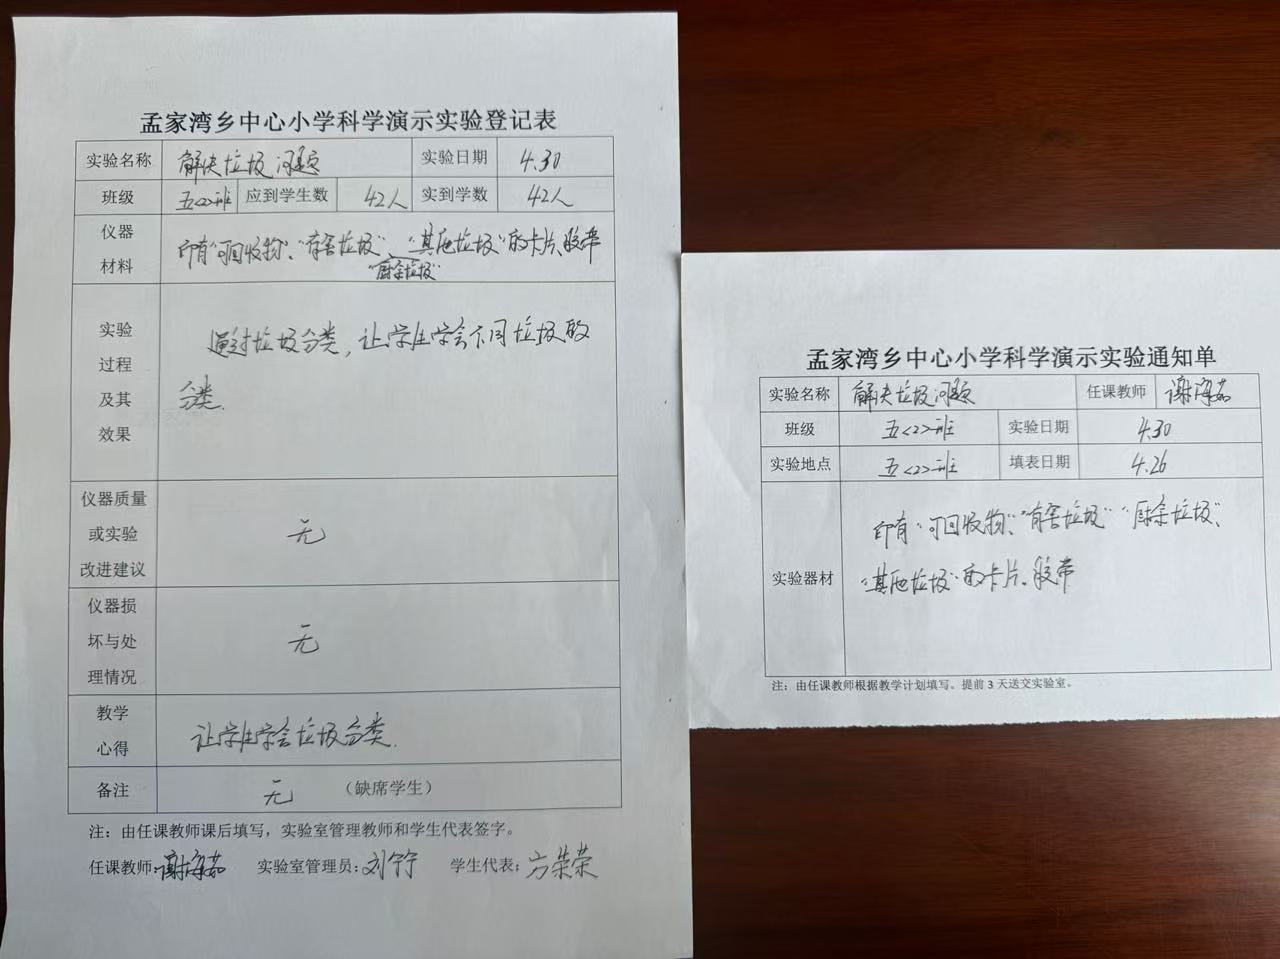 孟家湾乡中心小学科学演示实验登记表
实验名称 解决垃圾问题 实验日期 4.30
班级 五<2>班 应到学生数 42人 实到学数 42人
仪器材料 印有“可回收物”、“有害垃圾”、“其他垃圾”的卡片、胶带
“厨余垃圾”
实验过程及其效果 通过垃圾分类，让学生学会不同垃圾的
分类.
仪器质量或实验改进建议 无
仪器损坏与处理情况 无
教学心得 让学生学会垃圾分类.
备注 无 （缺席学生）
注：由任课教师课后填写，实验室管理教师和学生代表签字。
任课教师: 实验室管理员: 刘宁宁 学生代表: 方荣荣
孟家湾乡中心小学科学演示实验通知单
实验名称 解决垃圾问题 任课教师
班级 五<2>班 实验日期 4.30
实验地点 五<2>班 填表日期 4.26
实验器材 印有“可回收物”、“有害垃圾”“厨余垃圾”、
“其他垃圾”的卡片、胶带
注：由任课教师根据教学计划填写。提前 3 天送交实验室。